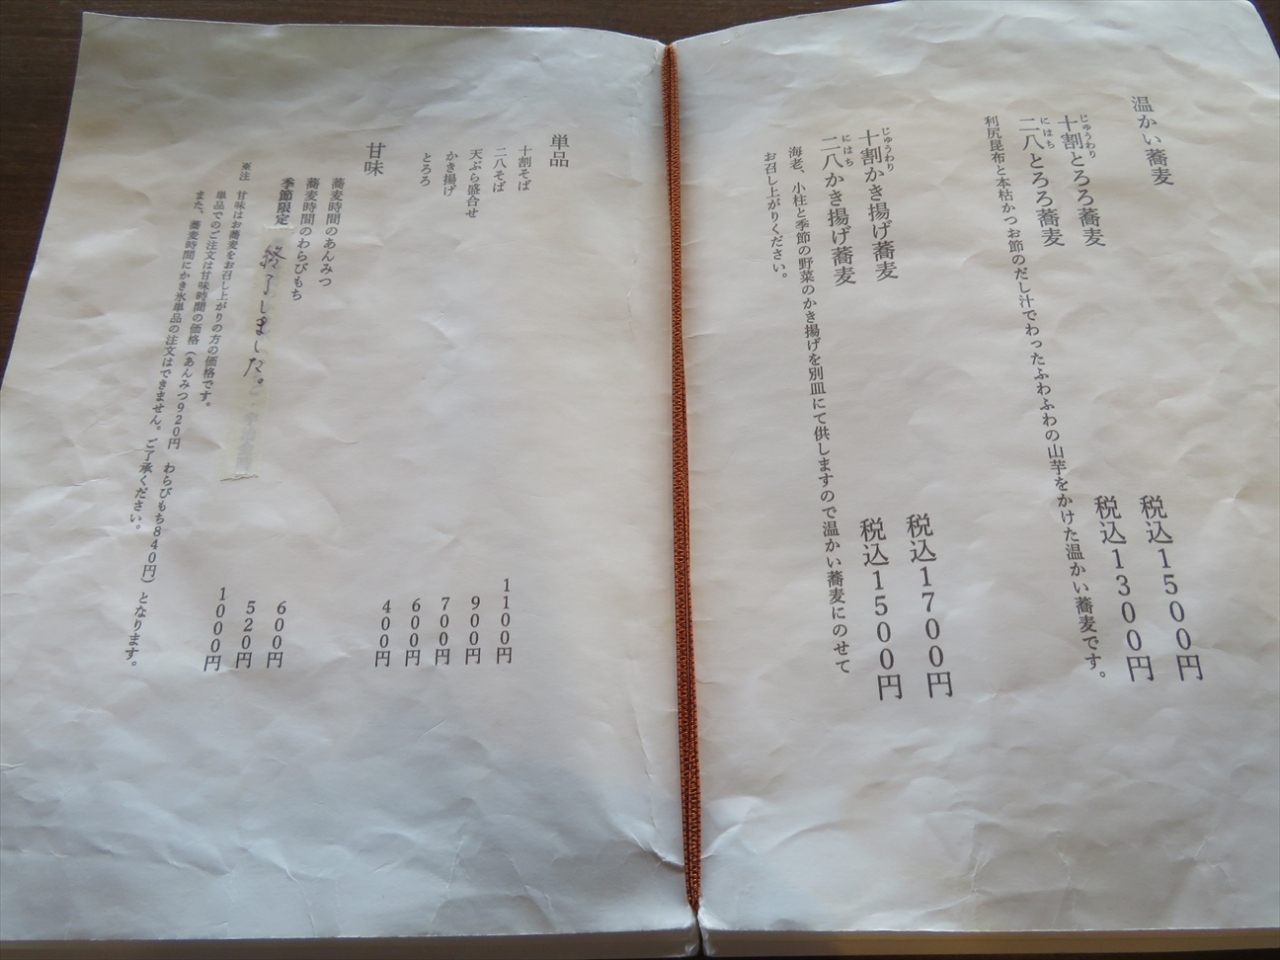 温かい蕎麦
十割とろろ蕎麦 税込1500円
じゅうわり
二八とろろ蕎麦 税込1300円
にはち
利尻昆布と本枯かつお節のだし汁でわったふわふわの山芋をかけた温かい蕎麦です。
十割かき揚げ蕎麦 税込1700円
じゅうわり
二八かき揚げ蕎麦 税込1500円
にはち
海老、小柱と季節の野菜のかき揚げを別皿にて供しますので温かい蕎麦にのせて
お召し上がりください。
単品
十割そば 1100円
二八そば 900円
天ぷら盛合せ 700円
かき揚げ 600円
とろろ 400円
甘味
蕎麦時間のあんみつ 600円
蕎麦時間のわらびもち 520円
季節限定 終了しました。 1000円
※注 甘味はお蕎麦をお召し上がりの方の価格です。
単品でのご注文は甘味時間の価格(あんみつ920円 わらびもち840円)となります。
また、蕎麦時間にかき氷単品の注文はできません。ご了承ください。